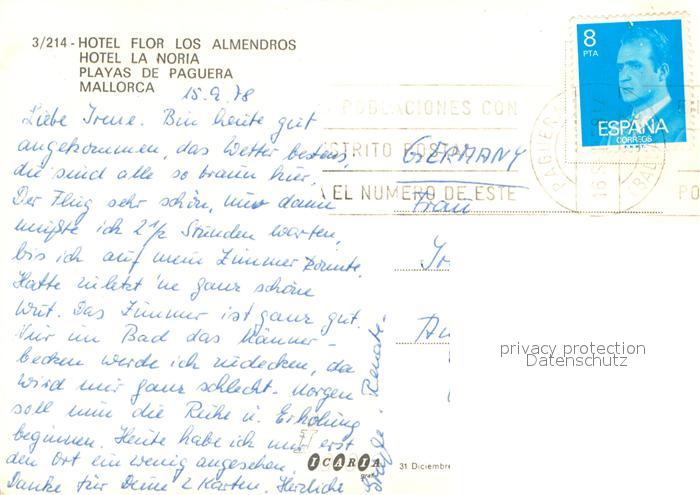 3/214 - HOTEL FLOR LOS ALMENDROS
HOTEL LA NORIA
PLAYAS DE PAGUERA
MALLORCA
15.9.78
Liebe Irene. Bin heute gut
angekommen, das Wetter bestens,
die sind alle so braun hier.
Der Flug sehr schön, nur dann
mußte ich 2 1/2 Stunden warten,
bis ich auf mein Zimmer konnte.
Hatte zuletzt 'ne ganz schöne
Wut. Das Zimmer ist ganz gut.
Nur im Bad das Männer-
becken werde ich zudecken, da
wird mir ganz schlecht. Morgen
soll nun die Ruhe u. Erholung
beginnen. Heute habe ich nur erst
den Ort ein wenig angesehen.
Danke für Deine 2 Karten. Herzliche
Grüße. Renate.
8
PTA
ESPAÑA
CORREOS
POBLACIONES CON
DISTRITO POSTAL
EL NUMERO DE ESTE
PO
PAGUERA
16 S
GERMANY
Frau
Ir
An
ICARIA
31 Diciembre
privacy protection
Datenschutz